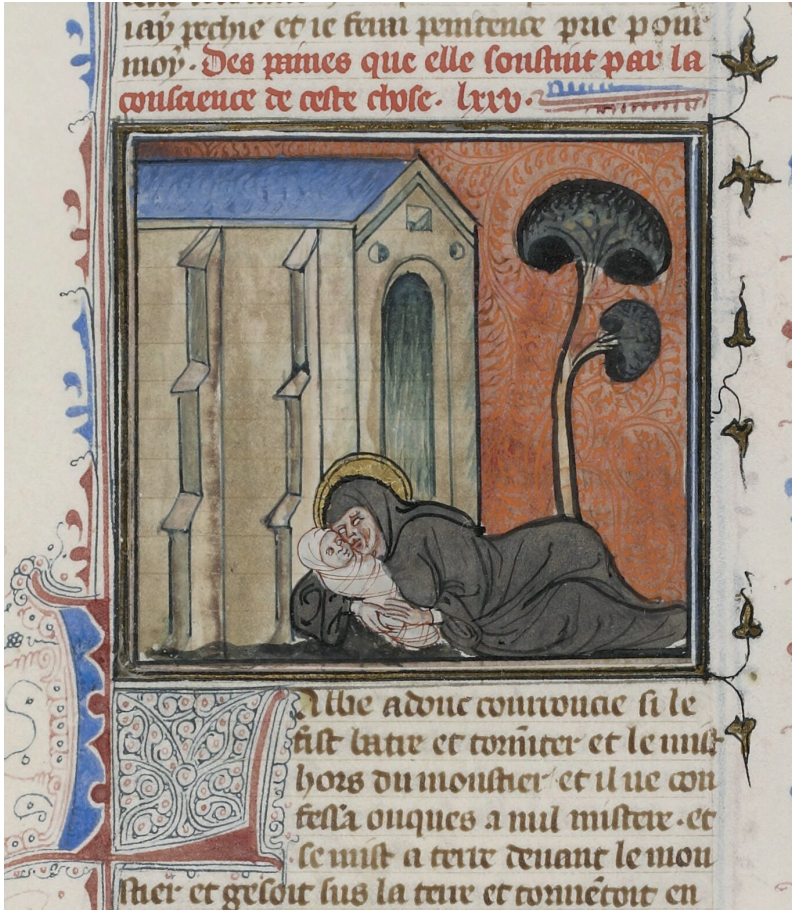 iay pechie et ie ferai penitence prie pour
moy. Des paines que elle soustint par la
conscience de ceste chose. lxxv.
Labbe adonc courroucie si le
fist batre et tormēter et le mist
hors du moustier et il ne con
fessa onques a nul mistere. et
se mist a terre deuant le mou
stier et gesoit sus la terre et tormētoit en